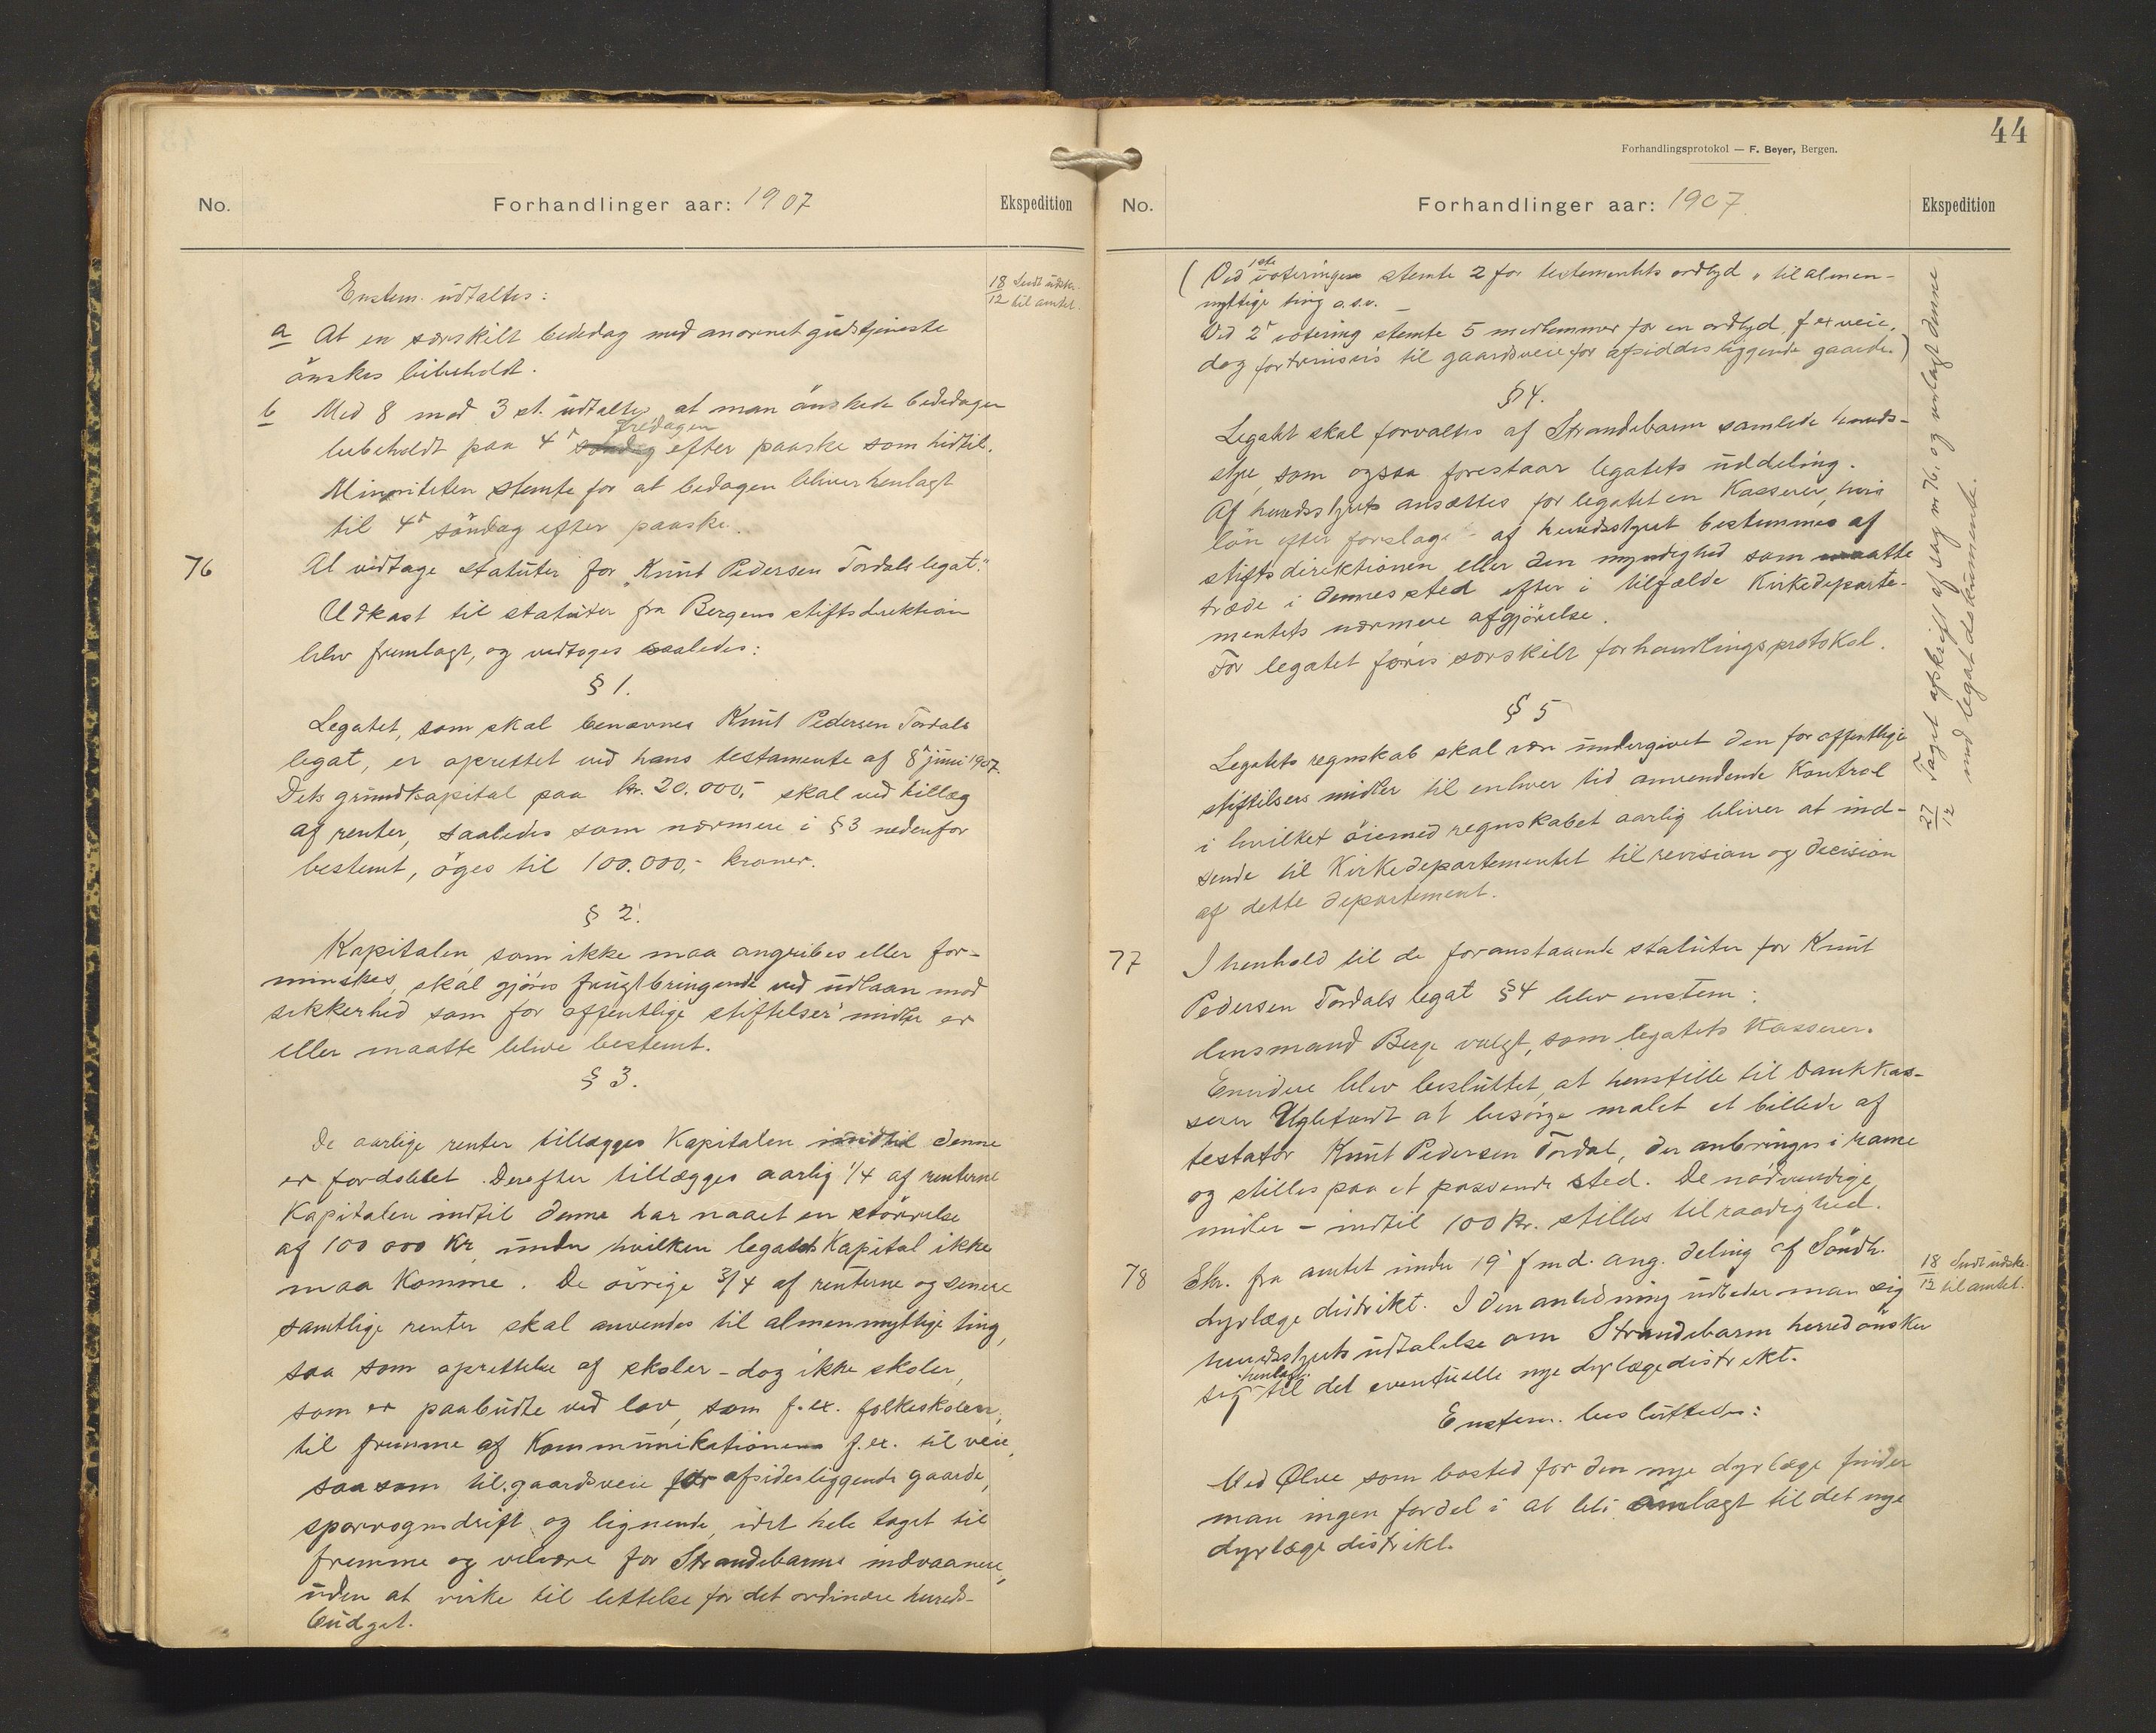 No.
Forhandlinger aar: 1907
Ekspedition
Enstem. udtaltes:
18/12 Sendt udskr. til amtet.
a At en særskilt bededag med anornet gudstjeneste
önskes bibeholdt.
b Med 8 mod 3 st. udtaltes, at man önskede bededagen
bibeholdt paa 4de fredagen efter paaske som hidtil.
Minoriteten stemte for at bedagen bliver henlagt
til 4de söndag efter paaske.
76 At vedtage statuter for "Knut Pedersen Tordals legat."
Udkast til statuter fra Bergens stiftsdirektion
blev fremlagt, og vedtoges saaledes:
§ 1.
Legatet, som skal benævnes Knut Pedersen Tordals
legat, er oprettet ved hans testamente af 8de juni 1907.
Dets grundkapital paa kr. 20.000,- skal ved tillæg
af renter, saaledes som nærmere i § 3 nedenfor
bestemt, öges til 100.000,- kroner.
§ 2.
Kapitalen, som ikke maa angribes eller for-
minskes, skal gjöres frugtbringende ved udlaan mod
sikkerhed som for offentlige stiftelser midler er
eller maatte blive bestemt.
§ 3.
De aarlige renter tillægges Kapitalen indtil denne
er fordoblet. Derefter tillægges aarlig 1/4 af renterne
Kapitalen indtil denne har naaet en störrelse
af 100 000 Kr, under hvilken legatets Kapital ikke
maa Komme. De övrige 3/4 af renterne og senere
samtlige renter skal anvendes til almennyttige ting,
saa som oprettelse af skoler - dog ikke skoler,
som er paabudte ved lov, som f. ex. folkeskolen,
til fremme af Kommunikationen f. ex. til veie,
saasom til gaardsveie for afsidesliggende gaarde,
sporvognsdrift og lignende, idet hele taget til
fremme og velvære for Strandebarms indvaanere,
uden at virke til lettelse for det ordinære hereds-
budget.
44
Forhandlingsprotokol — F. Beyer, Bergen.
No.
Forhandlinger aar: 1907.
Ekspedition
(Ved 1ste voteringen stemte 2 for testamentets ordlyd "til almen-
nyttige ting o.s.v.
Ved 2den votering stemte 5 medlemmer for en ordlyd f ex veie,
dog fortrinsvis til gaardsveie for afsiddesliggende gaarde.)
§ 4.
Legatet skal forvaltes af Strandebarm samlede hereds-
styre, som ogsaa forestaar legatets uddeling.
Af heredsstyret ansættes for legatet en Kasserer, hvis
lön efter forslag af heredsstyret bestemmes af
stiftsdirektionen eller den myndighed som maatte
træde i dennes sted efter i tilfælde Kirkedeparte-
mentets nærmere afgjörelse.
For legatet föres særskilt forhandlingsprotokol.
§ 5
Legatets regnskab skal være undergivet den for offentlige
stiftelsers midler til enhver tid anvendende Kontrol
i hvilket öiemed regnskabet aarlig bliver at ind-
sende til Kirkedepartementet til revision og decision
af dette departement.
27/12 Taget afskrift af sag nr 76. og vedlagt denne
med legatdokumente.
77 I henhold til de foranstaaende statuter for Knut
Pedersen Tordals legat § 4 blev enstem:
lensmand Berge valgt, som legatets Kasserer.
Enividere blev besluttet, at henstille til bankkas-
serer Uglefordt at besörge malet et billede af
testator Knut Pedersen Tordal, der anbringes i rame
og stilles paa et passende sted. De nödvendige
midler - indtil 100 kr. stilles til raadighed.
78 Skr. fra amtet under 19' f md. ang. deling af Söndh.
18/12 Sendt udskr. til amtet.
dyrlæge distrikt. I den anledning udbeder man sig
heredsstyrets udtalelse om Strandebarm herred önsker
sig henlagt til det eventuelle nye dyrlægedistrikt.
Enstem. besluttedes:
Med Ølve som bosted for den nye dyrlæge finder
man ingen fordel i at bli omlagt til det nye
dyrlæge distrikt.